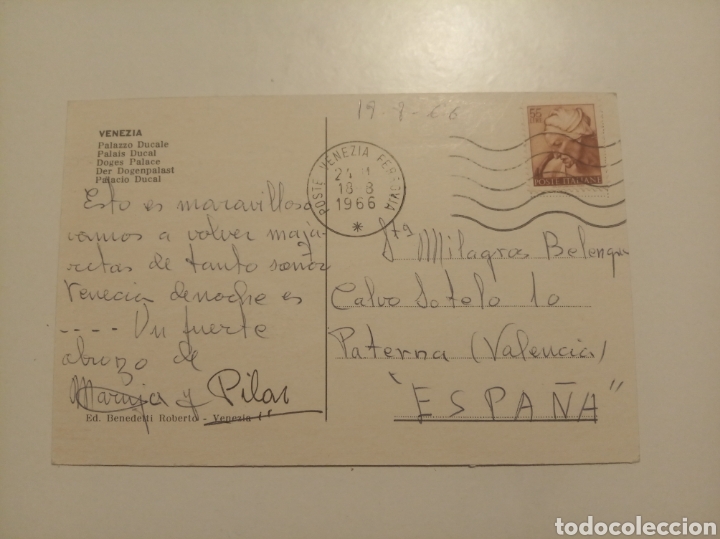 VENEZIA
Palazzo Ducale
Palais Ducal
Doges Palace
Der Dogenpalast
Palacio Ducal
Esto es maravilloso
vamos a volver maja-
retas de tanto soñar
Venecia denoche es
---- Un fuerte
abrazo de
Maruja y Pilar
Ed. Benedetti Roberto - Venezia
POSTE VENEZIA FERROVIA
18 8
1966
POSTE ITALIANE
Sta Milagros Belenguer
Calvo Sotelo 10
Paterna (Valencia)
"ESPAÑA"
todocoleccion